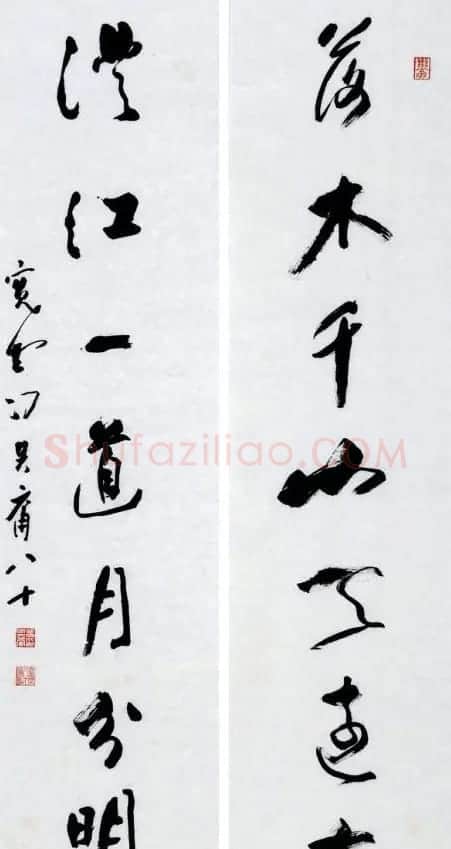 落木千山天遠
澄江一道月分明
寬堂冯其庸八十
Shufaziliao.COM